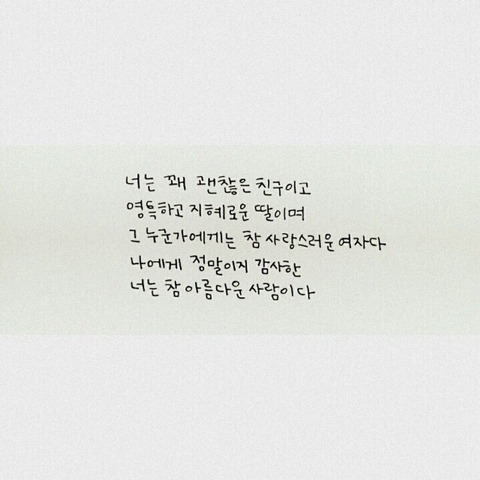 너는 꽤 괜찮은 친구이고
영특하고 지혜로운 딸이며
그 누군가에게는 참 사랑스러운 여자다
나에게 정말이지 감사한
너는 참 아름다운 사람이다